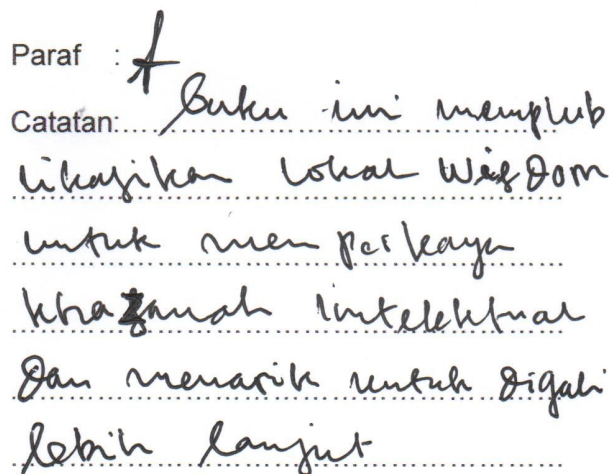 Paraf :
Catatan: Buku ini mempub
likasikan lokal Wisdom
untuk memperkaya
khazanah intelektual
dan menarik untuk digali
lebih lanjut